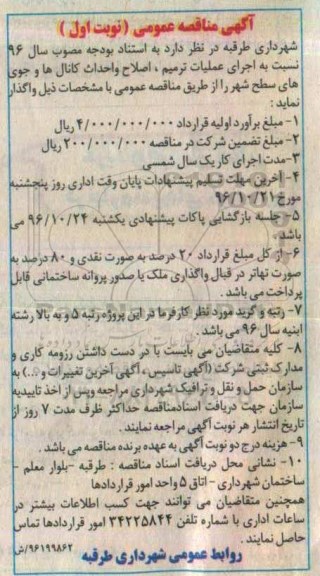 آگهی مناقصه عمومی (نوبت اول )
شهرداری طرقبه در نظر دارد به استناد بودجه مصوب سال ۹۶
نسبت به اجرای عملیات ترمیم ، اصلاح واحداث کانال ها و جوی
های سطح شهر را از طریق مناقصه عمومی با مشخصات ذیل واگذار
نماید :
۱- مبلغ برآورد اولیه قرارداد ۴/۰۰۰/۰۰۰/۰۰۰ ریال
۲- مبلغ تضمین شرکت در مناقصه ۲۰۰/۰۰۰/۰۰۰ ریال
۳-مدت اجرای کار یک سال شمسی
۴- آخرین مهلت تسلیم پیشنهادات پایان وقت اداری روز پنجشنبه
مورخ ۹۶/۱۰/۲۱
۵- جلسه بازگشایی پاکات پیشنهادی یکشنبه ۹۶/۱۰/۲۴ می
باشد .
۶- از کل مبلغ قرارداد ۲۰ درصد به صورت نقدی و ۸۰ درصد به
صورت تهاتر در قبال واگذاری ملک یا صدور پروانه ساختمانی قابل
پرداخت می باشد .
۷- رتبه و گرید مورد نظر کارفرما در این پروژه رتبه ۵ و به بالا رشته
ابنیه سال ۹۶ می باشد .
۸- کلیه متقاضیان می بایست با در دست داشتن رزومه کاری و
مدارک ثبتی شرکت (آگهی تاسیس ، آگهی آخرین تغییرات و ...) به
سازمان حمل و نقل و ترافیک شهرداری مراجعه وپس از اخذ تاییدیه
سازمان جهت دریافت اسنادمناقصه حداکثر ظرف مدت ۷ روز از
تاریخ انتشار هر نوبت آگهی مراجعه نمایند .
۹- هزینه درج دو نوبت آگهی به عهده برنده مناقصه می باشد .
۱۰- نشانی محل دریافت اسناد مناقصه : طرقبه -بلوار معلم -
ساختمان شهرداری - اتاق ۵ واحد امور قراردادها
همچنین متقاضیان می توانند جهت کسب اطلاعات بیشتر در
ساعات اداری با شماره تلفن ۳۴۲۲۵۸۴۴ امور قراردادها تماس
حاصل نمایند .
۹۶۱۹۹۸۶۲/ش
روابط عمومی شهرداری طرقبه